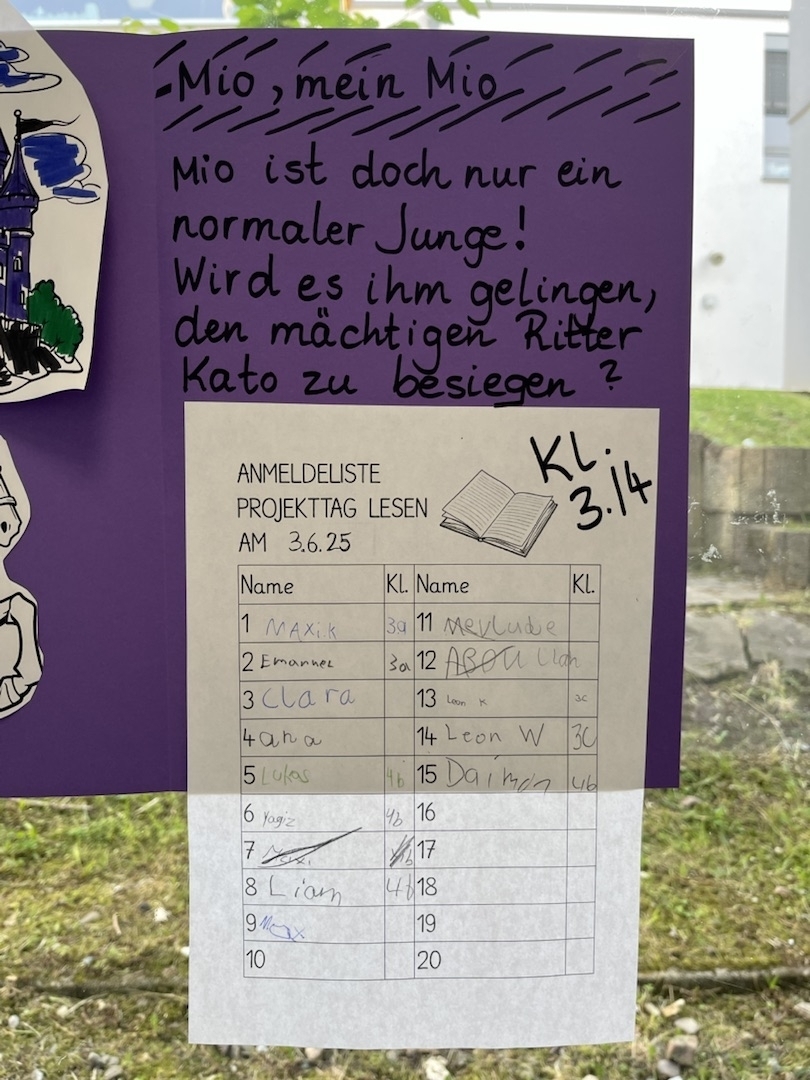 Mio, mein Mio
Mio ist doch nur ein
normaler Junge!
Wird es ihm gelingen,
den mächtigen Ritter
Kato zu besiegen?
Kl.
3./4
ANMELDELISTE
PROJEKTTAG LESEN
AM 3.6.25
Name Kl. Name Kl.
1 MAXi.K 3a 11 Mevludie
2 Emannel 3a 12 ABDULLah
3 Clara 13 Leon K 3c
4 ana 14 Leon W 3C
5 Lukas 4b 15 Daimon 4b
6 Yagiz 4b 16
7 17
8 Liam 4b 18
9 Max 19
10 20